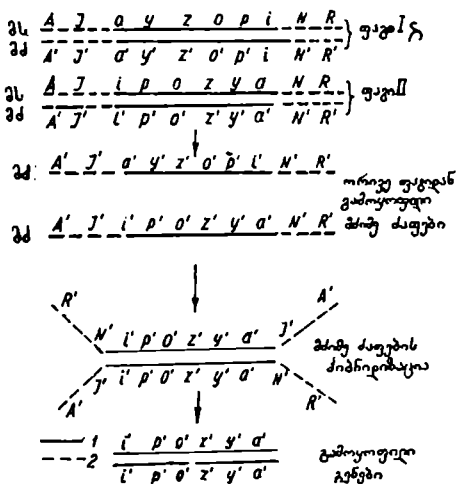 მს A J a y z o p i N R
მძ A' J' a' y' z' o' p' i N' R' ფაგი I
მს A J i p o z y a N R
მძ A' J' i' p' o' z' y' a' N' R' ფაგი II
მძ: A' J' a' y' z' o' p' i' N' R'
ორივე ფაგიდან
გამოყოფილი
მძიმე ძაფები
მძ A' J' i' p' o' z' y' a' N' R'
R' A'
N' i' p' o' z' y' a' J'
მძიმე ძაფების
ჰიბრიდიზაცია
J' i' p' o' z' y' a' N'
A' R'
1 i' p' o' z' y' a'
2 i' p' o' z' y' a'
გამოყოფილი
გენები